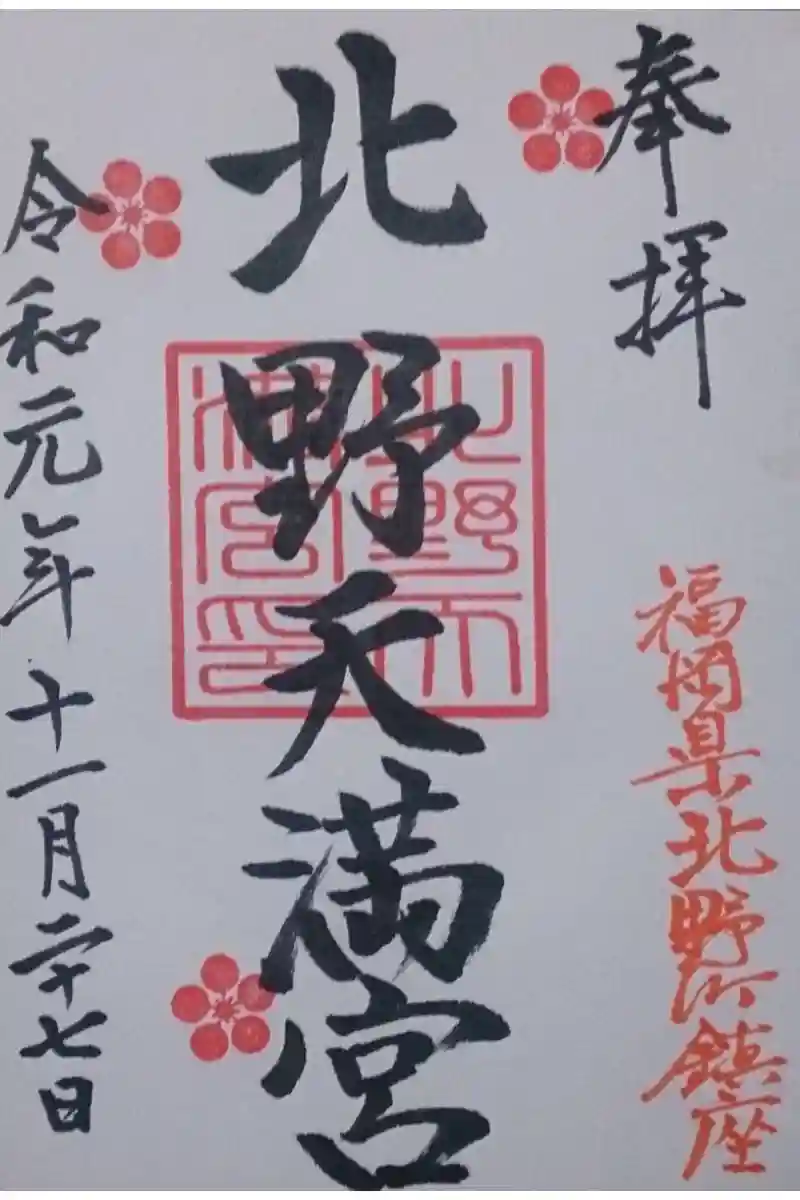 奉拝
福岡県北野町鎮座
北野天満宮
北野天満宮印
令和元年十一月二十七日